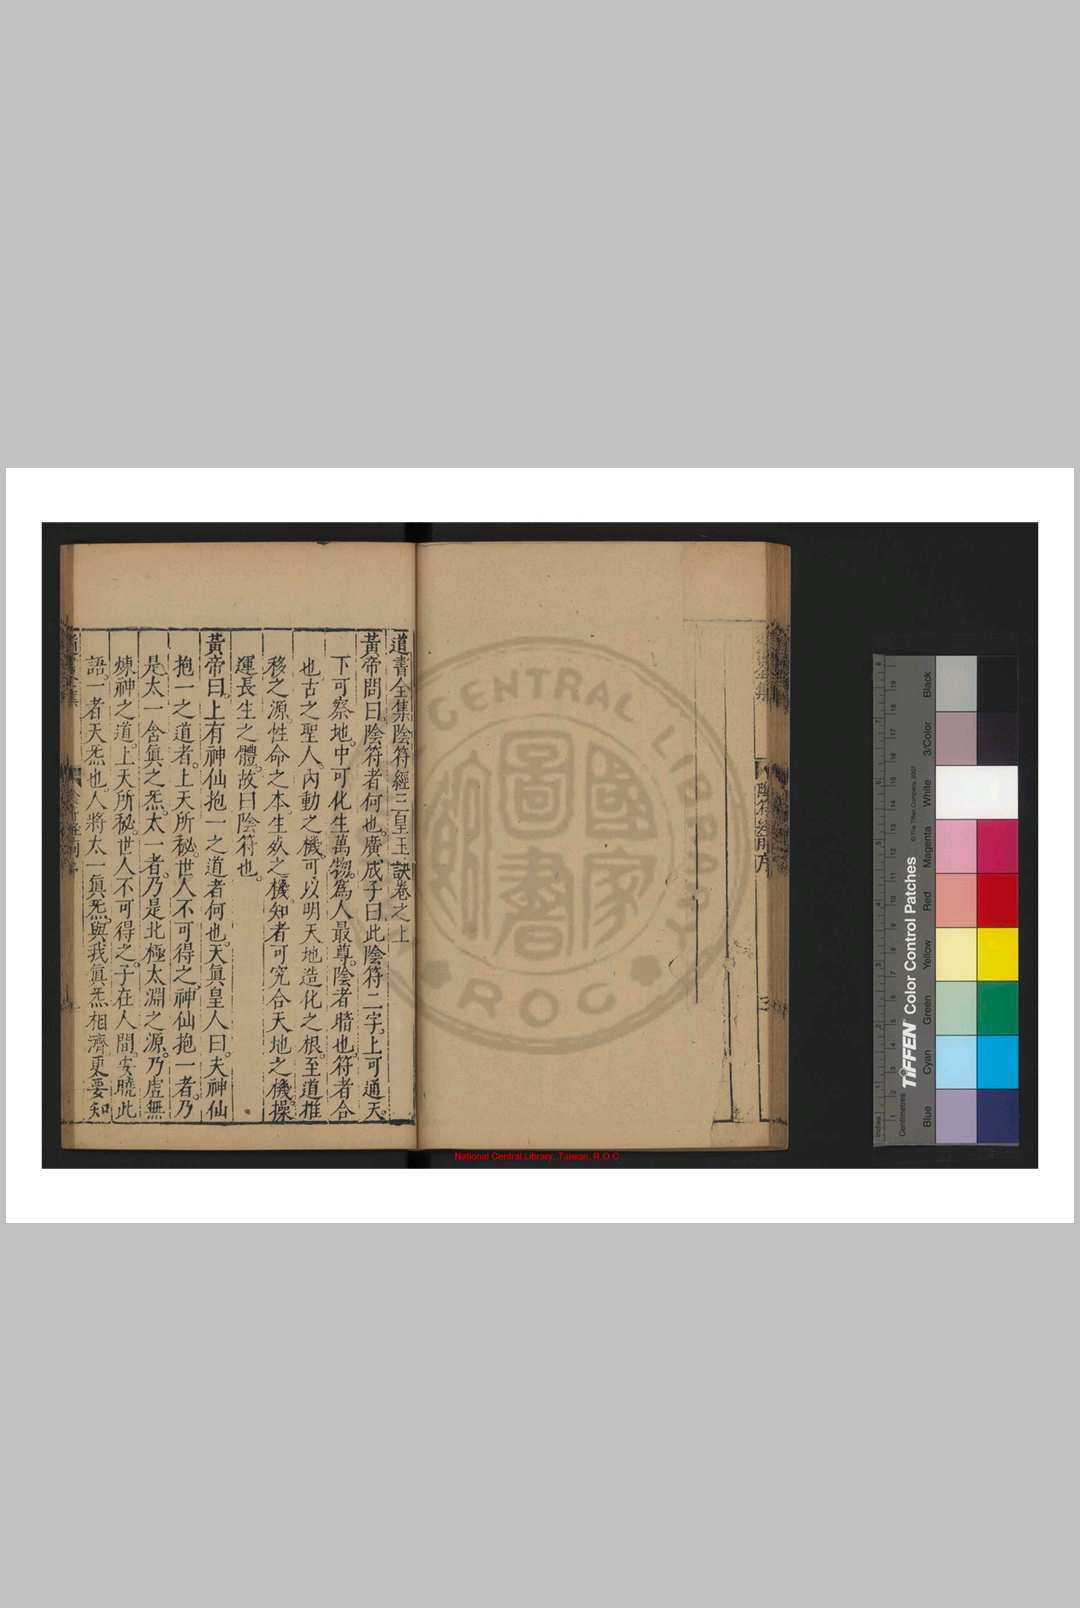 道書全集陰符經三皇玉訣卷之上
黃帝問曰。陰符者何也。廣成子曰此陰符二字。上可通天。
下可察地。中可化生萬物。爲人最尊。陰者暗也。符者合
也。古之聖人。內動之機。可以明天地造化之根。至道推
移之源。性命之本。生死之機。知者可究合天地之機。操
運長生之體。故曰陰符也。
黃帝曰。上有神仙抱一之道者何也。天眞皇人曰。夫神仙
抱一之道者。上天所秘。世人不可得之。神仙抱一者。乃
是太一含眞之炁。太一者。乃是北極太淵之源。乃虛無
煉神之道。上天所秘。世人不可得之。子在人間。安曉此
語。一者天炁也。人將太一眞炁。與我眞炁相濟。更要知
NATIONAL CENTRAL LIBRARY
國家圖書館
ROC
National Central Library, Taiwan, R.O.C
TIFFEN Color Control Patches
© The Tiffen Company, 2007
Inches
Centimetres
Blue
Cyan
Green
Yellow
Red
Magenta
White
3/Color
Black